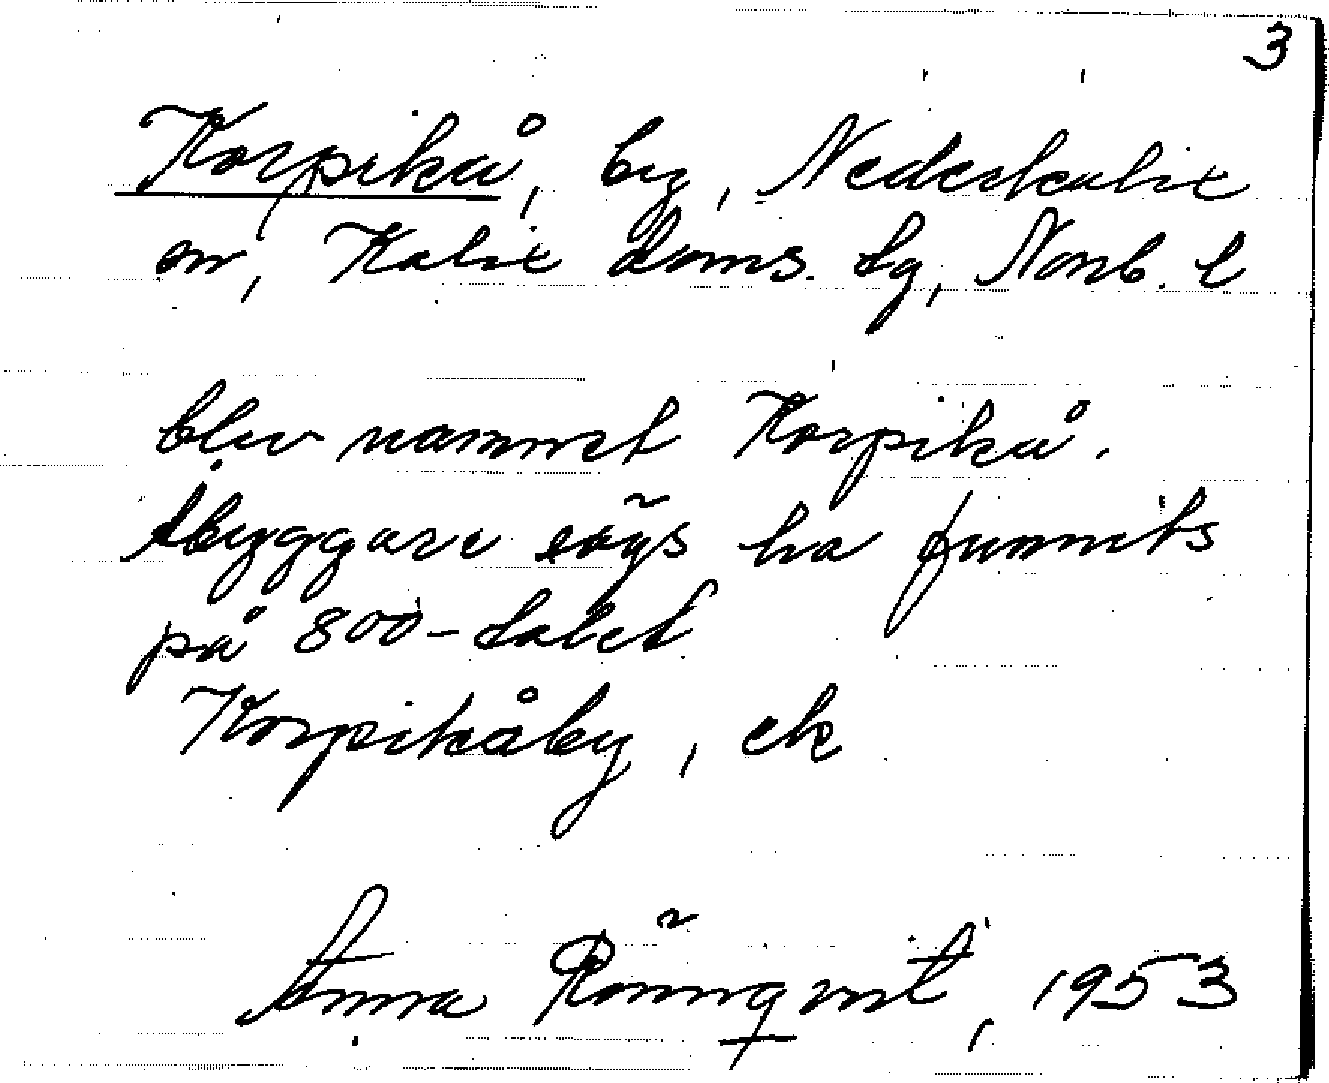 3
Korpikå, by, Nederkalix
sn, Kalix doms. tg, Norrb. l
blev namnet Korpikå.
Åbyggare säys ha funnits
på 800-talet
Korpikåby, ek
Anna Rönnqvist, 1953